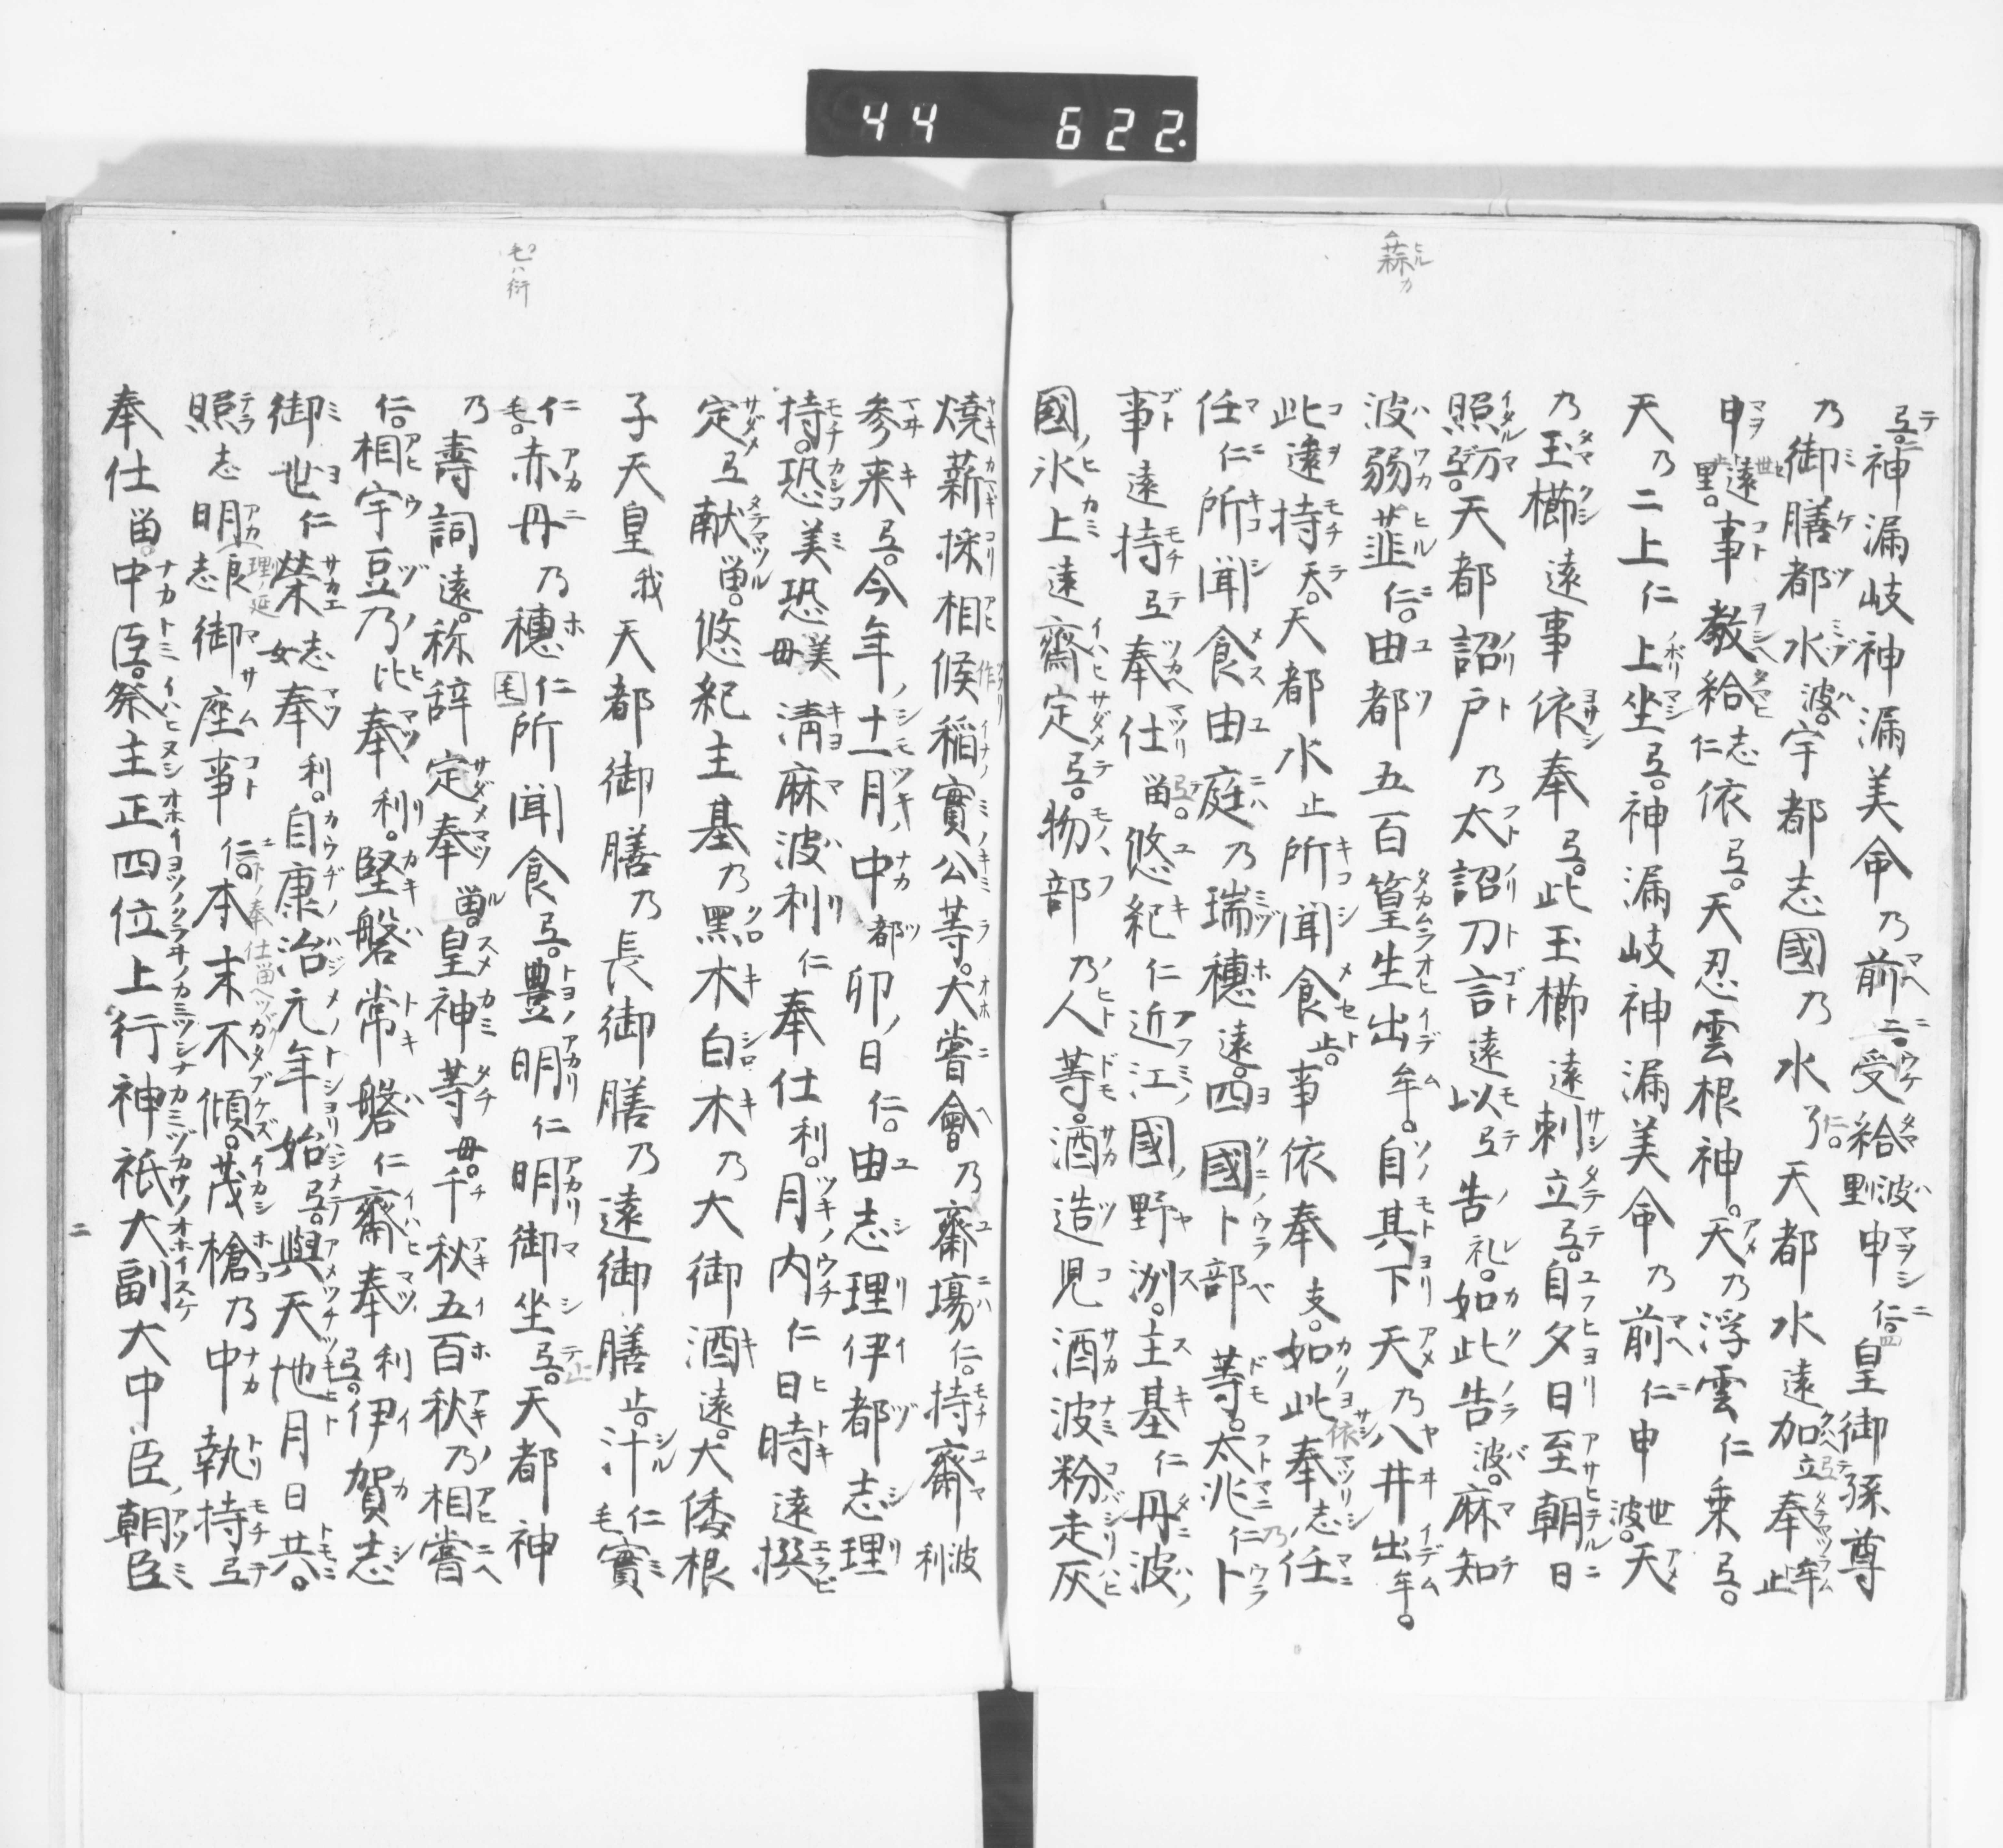 44 622.
蒜ヒルカ
弖。神漏岐神漏美命乃前仁。受給波里申仁。皇御孫尊
乃御膳都水波。宇都志國乃水仁。天都水遠加弖奉牟止
申遠里。事教給志仁依弖。天忍雲根神。天乃浮雲仁乗弖。
天乃二上仁上坐弖。神漏岐神漏美命乃前仁申世波。天
乃玉櫛遠事依奉弖。此玉櫛遠刺立弖。自夕日至朝日
照万弖。天都詔戸乃太詔刀言遠以弖告礼。如此告波。麻知
波弱韮仁。由都五百篁生出牟。自其下天乃八井出牟。
此遠持天。天都水止所聞食止。事依奉支。如此依奉志任
任仁所聞食由庭乃瑞穂遠。四國卜部等。太兆仁卜
事遠持弖奉仕留。悠紀仁近江國野洲。主基仁丹波
國氷上遠齋定弖。物部乃人等。酒造児酒波粉走灰
焼薪採相候稲實公等。大嘗會乃齋場仁。持齋波利
参来弖。今年十一月中都卯日仁。由志理伊都志理
持。恐美恐美毋清麻波利仁奉仕利。月内仁日時遠撰
定弖献留。悠紀主基乃黒木白木乃大御酒遠。大倭根
子天皇我天都御膳乃長御膳乃遠御膳止。汁仁毛實
仁毛。赤丹乃穂仁毛所聞食弖。豊明仁明御坐弖。天都神
乃壽詞遠。称辞定奉留。皇神等毋。千秋五百秋乃相嘗
仁。相宇豆乃比奉利。堅磐常磐仁齋奉利弖。伊賀志
御世仁榮志女奉利。自康治元年始弖。與天地月日共。
照志明良志御座事仁。本末不傾。茂槍乃中執持弖
奉仕留。中臣。祭主正四位上行神祇大副大中臣朝臣
毛ハ衍
二